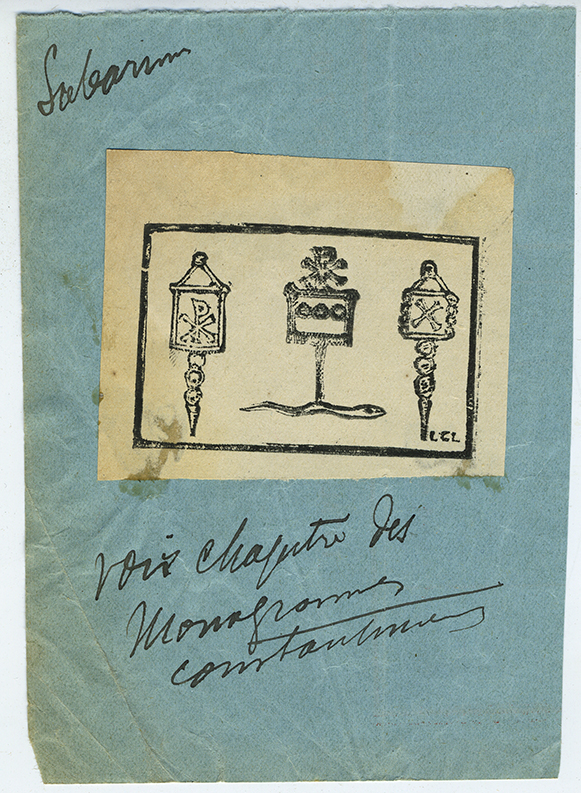 Labarum
LCL
voir chapitre des
Monogrammes
constantiniens